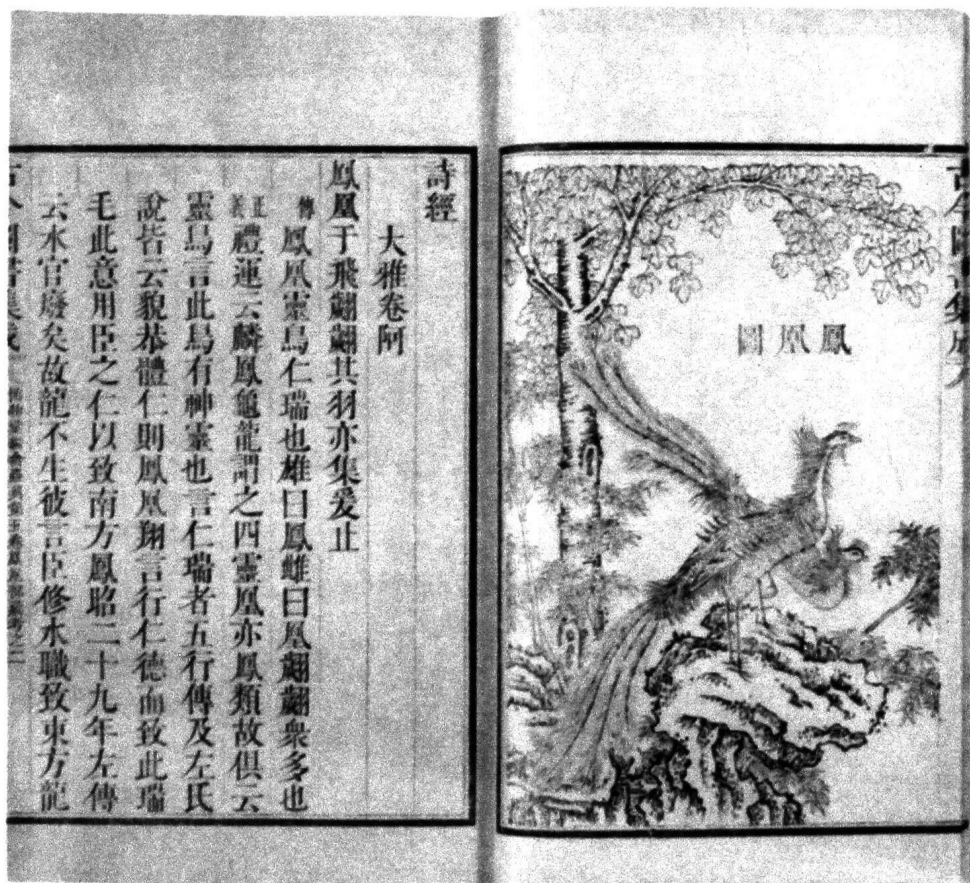 鳳凰圖
詩經
大雅卷阿
鳳凰于飛翽翽其羽亦集爰止
傳 鳳凰靈鳥仁瑞也雄曰鳳雌曰凰翽翽衆多也
正義 禮運云麟鳳龜龍謂之四靈凰亦鳳類故俱云
靈鳥言此鳥有神靈也言仁瑞者五行傳及左氏
說皆云貌恭體仁則鳳凰翔言行仁德而致此瑞
毛此意用臣之仁以致南方鳳昭二十九年左傳
云水官廢矣故龍不生彼言臣修水職致東方龍
古今圖書集成